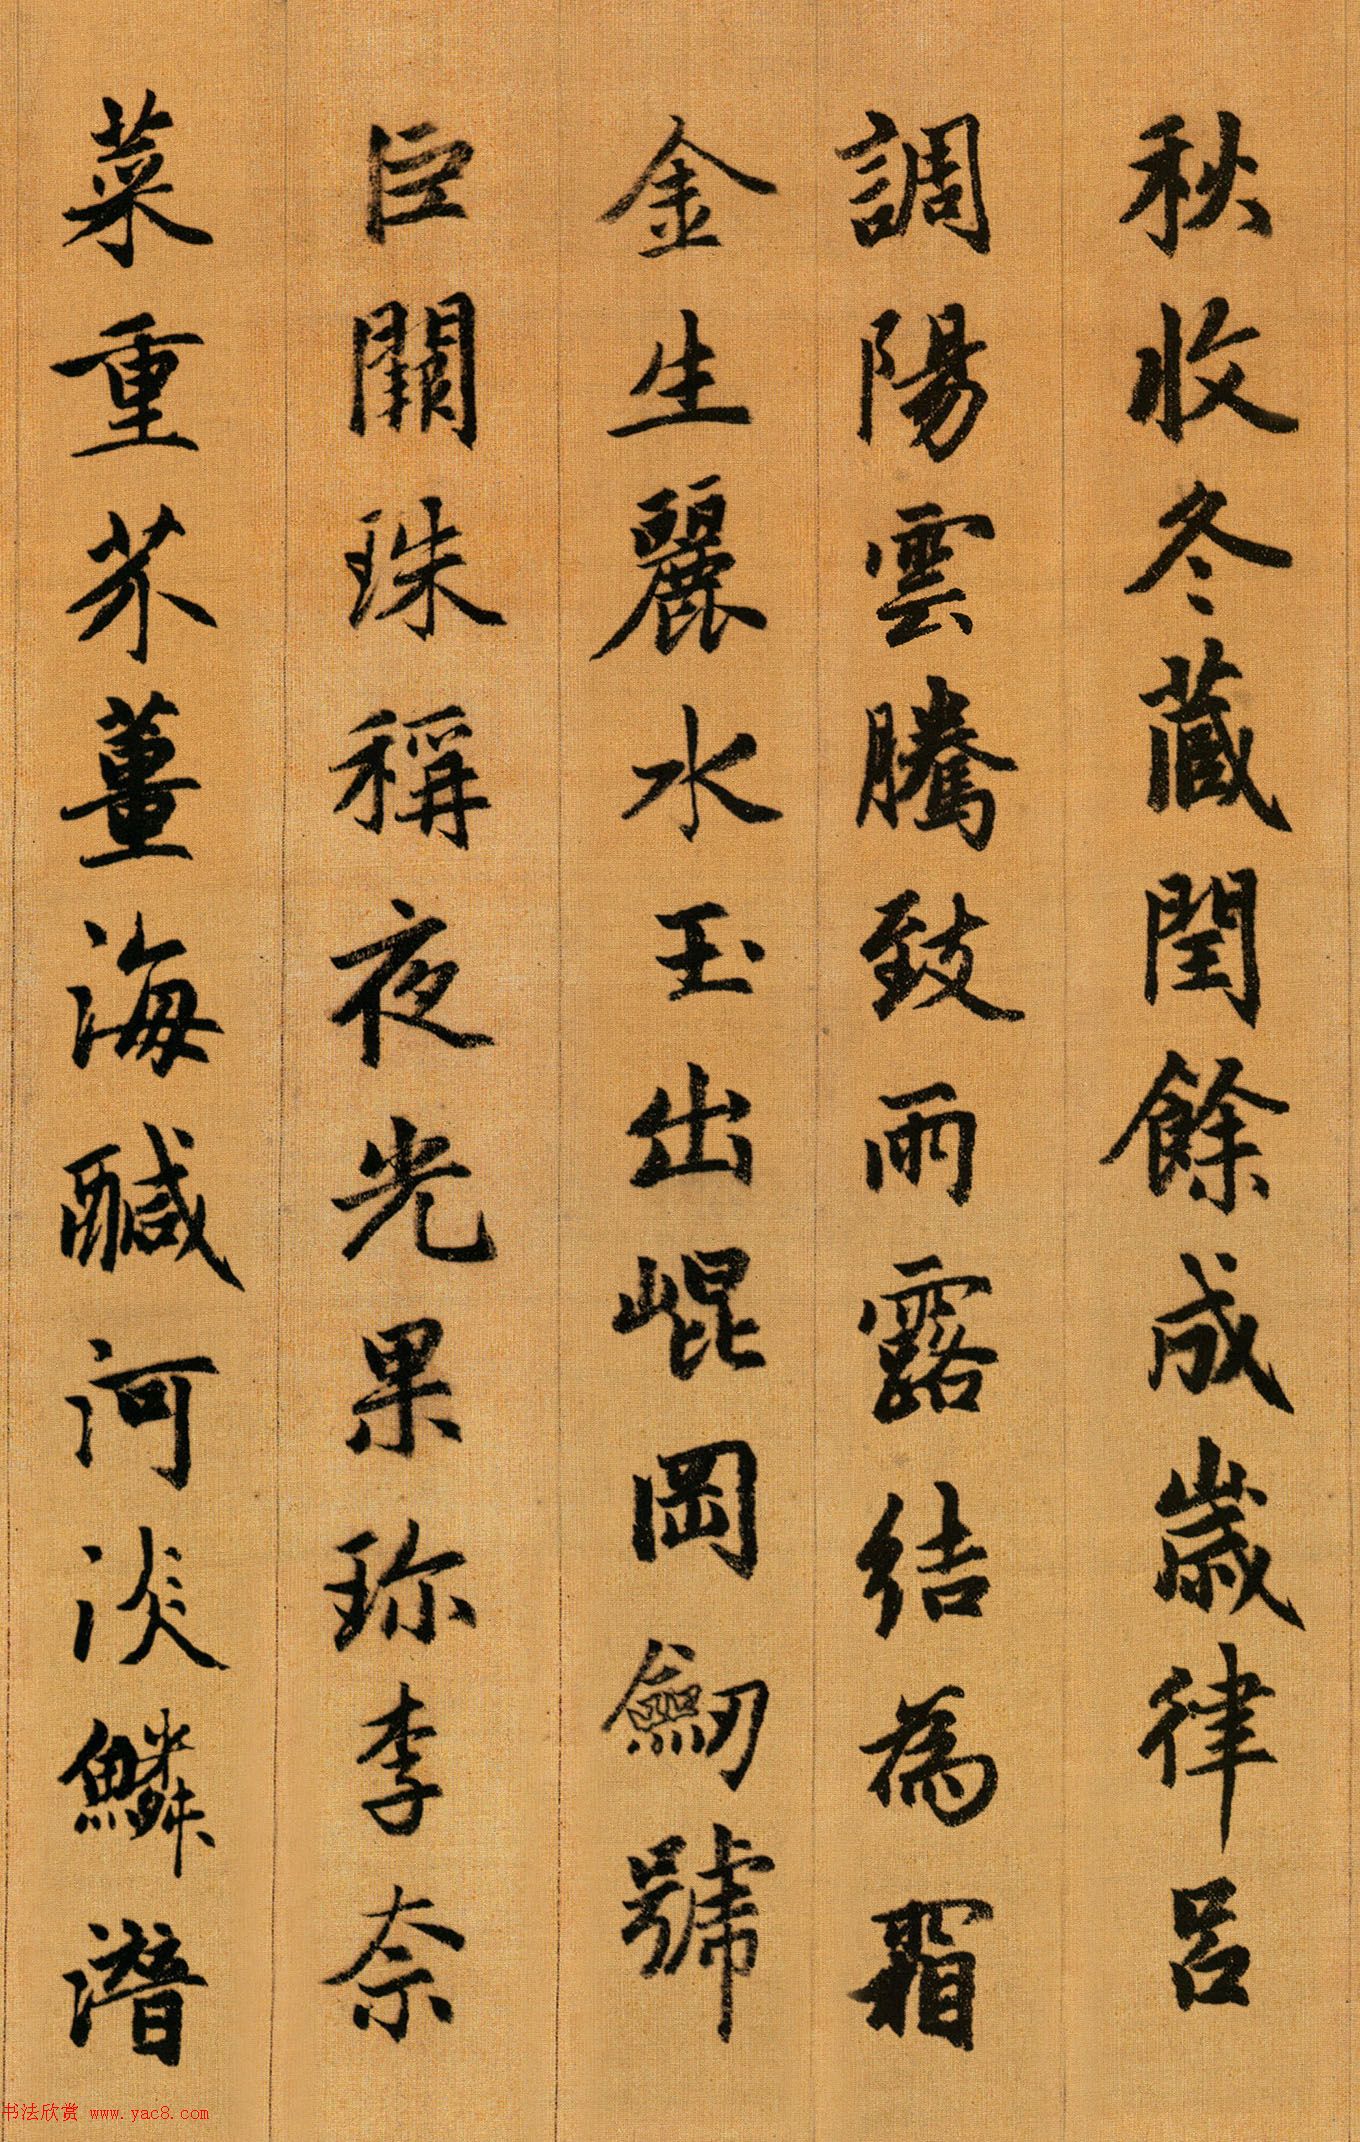 秋收冬蔵閏餘成歲律呂
調陽雲騰致雨露結為霜
金生麗水玉出崐岡劒號
巨闕珠稱夜光果珎李柰
菜重芥薑海鹹河淡鱗潛
书法欣赏 www.yac8.com